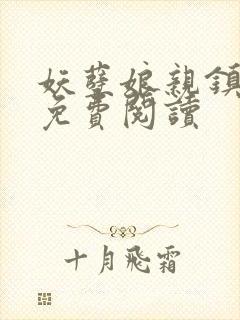 妖孽娘親鎮
免費閱讀
十月飛霜